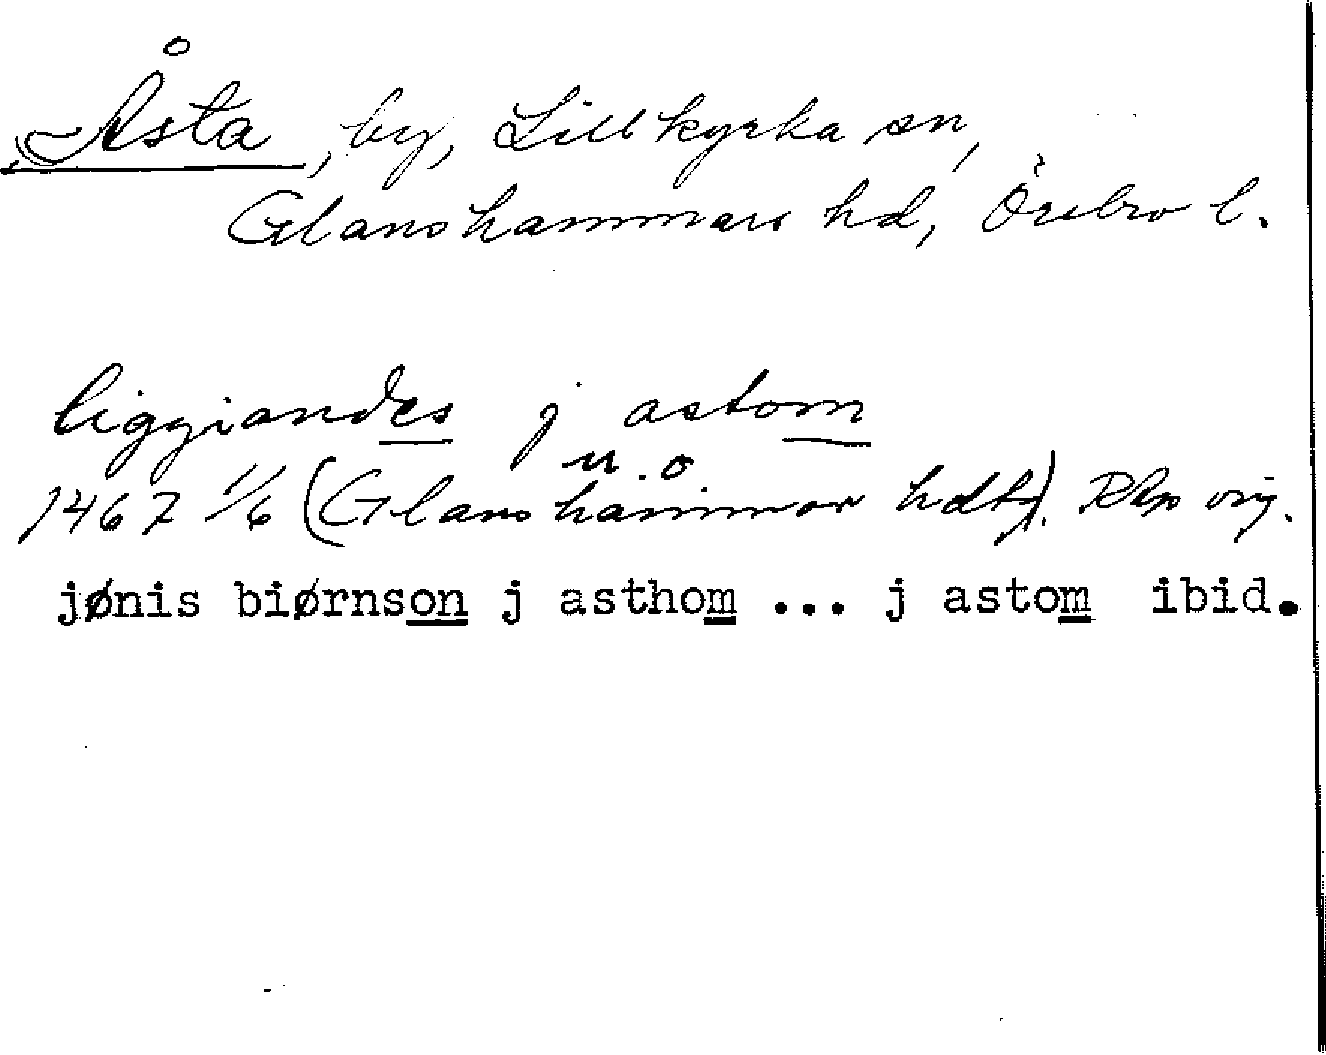 Åsta, by, Lillkyrka sn,
Glanshammars hd, Örebro l.
liggiandes j astom
u. o.
1467 1/6 (Glanshammar hdt). RAp orig.
jønis biørnson j asthom ... j astom ibid.